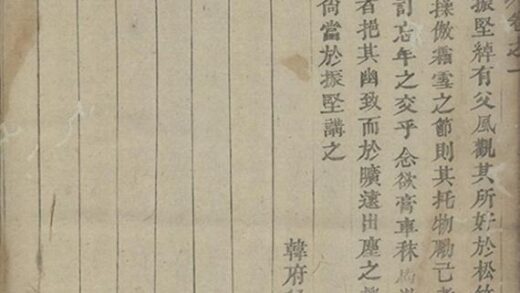 卷之一
振堅綽有父風觀其所好於松竹
操倣霜雪之節則其托物勵己者
訂忘年之交乎念欲膏車秣
者挹其幽致而於曠遠出塵之
尙當於振堅講之
韓府